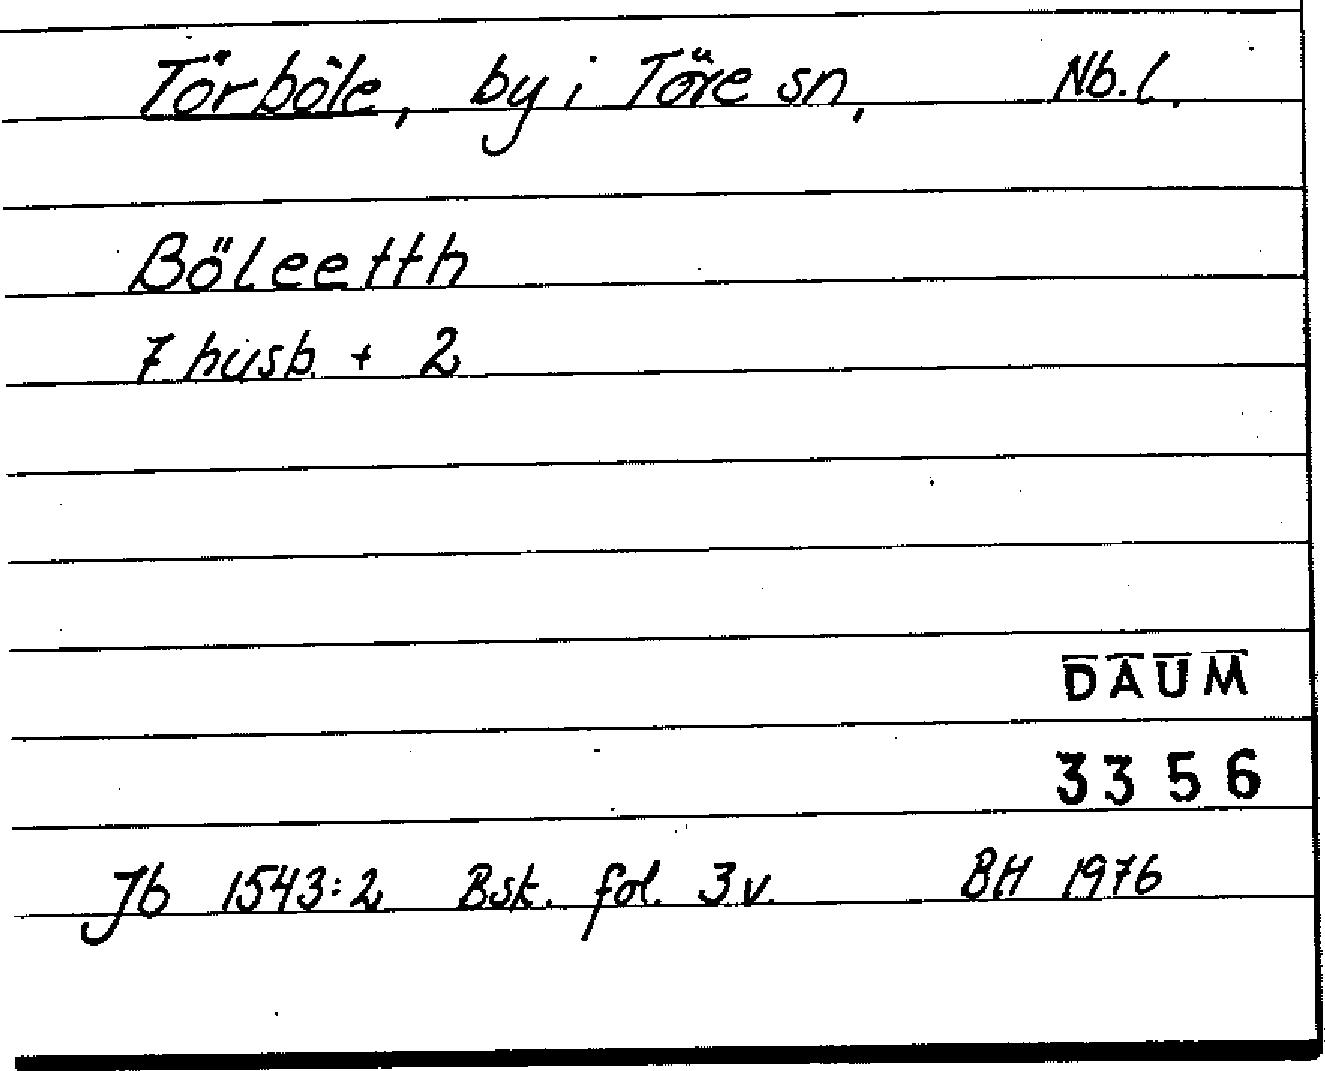 Törböle, by i Töre sn, Nb.l.
Böleetth
7 husb. + 2
DAUM
3356
Jb 1543:2 Bsk. fol. 3v. BH 1976